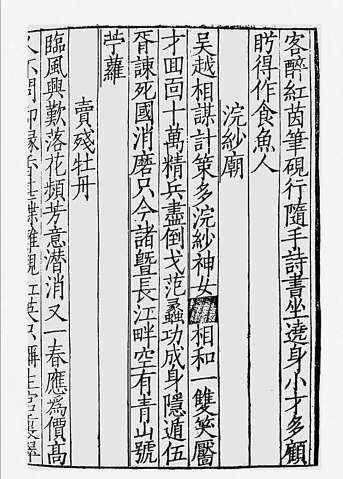 客醉紅茵筆硯行隨手詩書坐遶身小才多顧
眄得作食魚人
浣紗廟
吳越相謀計策多浣紗神女相和一雙笑靨
才囘面十萬精兵盡倒戈范蠡功成身隱遁伍
胥諫死國消磨只今諸暨長江畔空有青山號
苧蘿
賣殘牡丹
臨風興歎落花頻芳意潛消又一春應爲價高
人不問却緣香甚蝶難親紅英只稱生宮裏翠